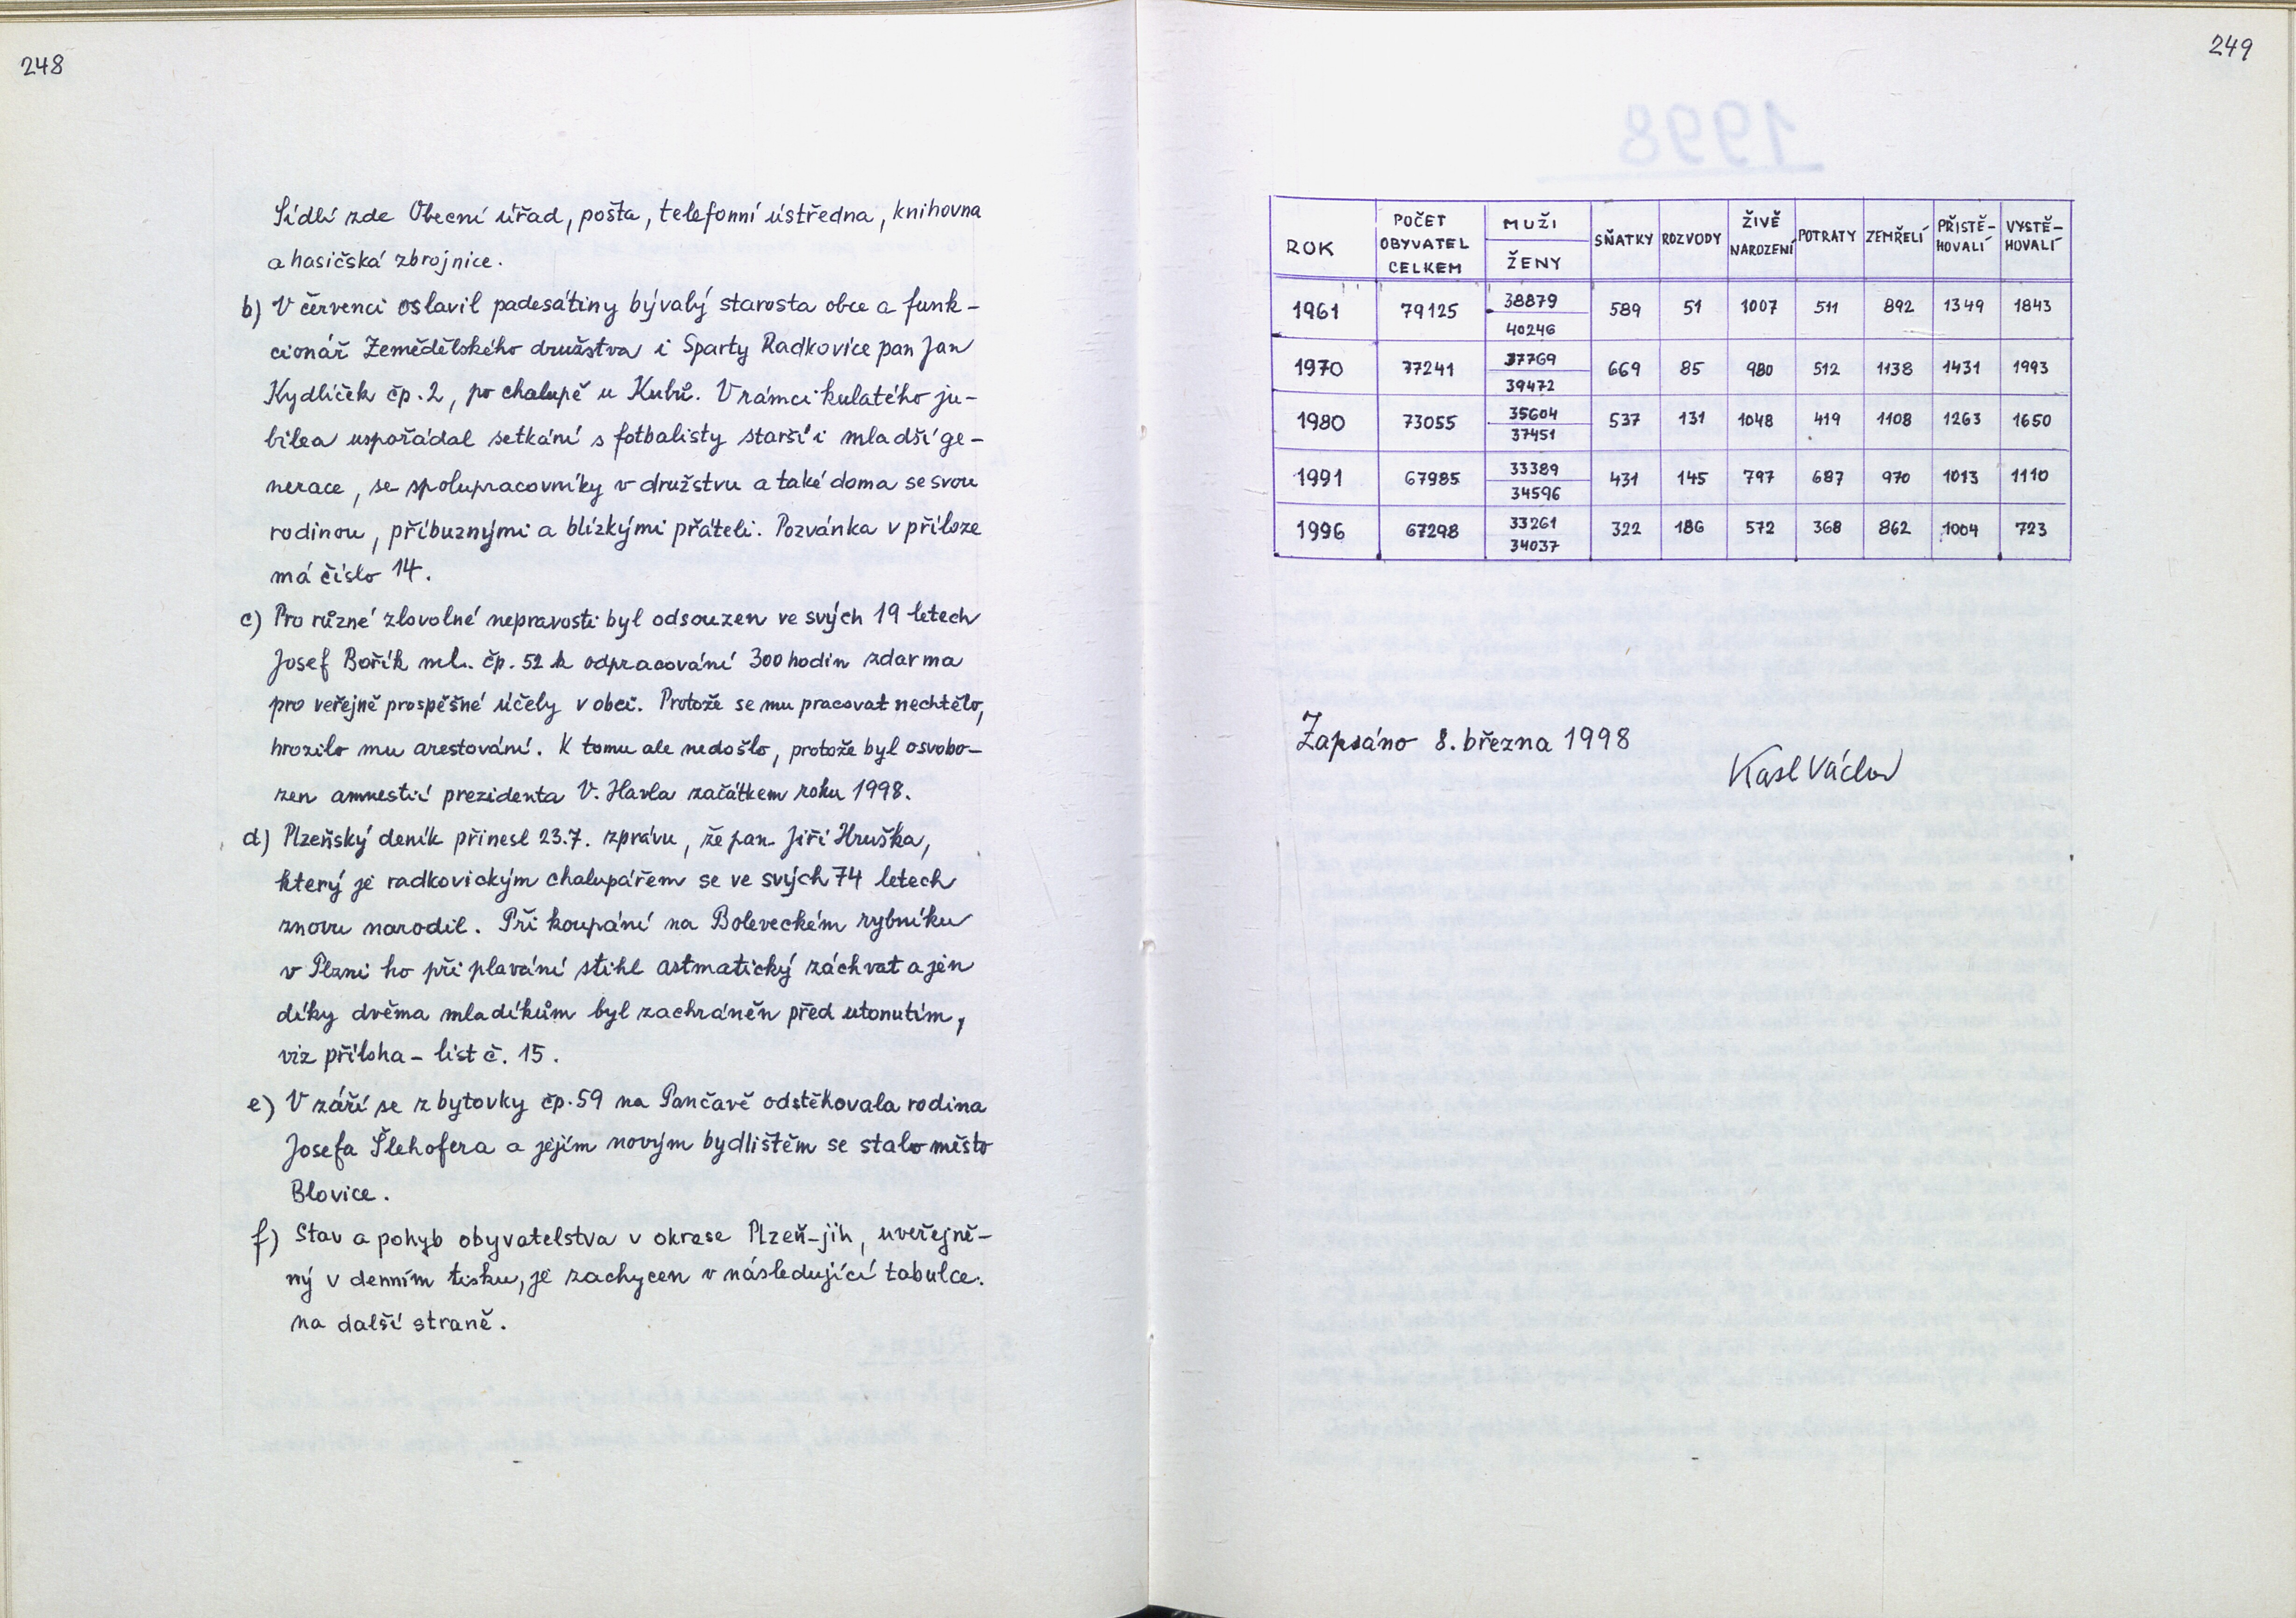 248
Sídlí zde Obecní úřad, pošta, telefonní ústředna, knihovna
a hasičská zbrojnice.
b) V červenci oslavil padesátiny bývalý starosta obce a funk-
cionář Zemědělského družstva i Sparty Radkovice pan Jan
Kydlíček čp. 2, po chalupě u Kubů. V rámci kulatého ju-
bilea uspořádal setkání s fotbalisty starší i mladší ge-
nerace, se spolupracovníky v družstvu a také doma se svou
rodinou, příbuznými a blízkými přáteli. Pozvánka v příloze
má číslo 14.
c) Pro různé zlovolné nepravosti byl odsouzen ve svých 19 letech
Josef Bořík ml. čp. 52 k odpracování 300 hodin zdarma
pro veřejně prospěšné účely v obci. Protože se mu pracovat nechtělo,
hrozilo mu arestování. K tomu ale nedošlo, protože byl osvobo-
zen amnestií prezidenta V. Havla začátkem roku 1998.
d) Plzeňský deník přinesl 23.7. zprávu, že pan Jiří Hruška,
který je radkovickým chalupářem se ve svých 74 letech
znovu narodil. Při koupání na Boleveckém rybníku
v Plzni ho při plavání stihl astmatický záchvat a jen
díky dvěma mladíkům byl zachráněn před utonutím,
viz příloha - list č. 15.
e) V září se z bytovky čp. 59 na Pančavě odstěhovala rodina
Josefa Šlehofera a jejím novým bydlištěm se stalo město
Blovice.
f) Stav a pohyb obyvatelstva v okrese Plzeň-jih, uveřejně-
ný v denním tisku, je zachycen v následující tabulce.
na další straně.
249
ROK POČET OBYVATEL CELKEM MUŽI ŽENY SŇATKY ROZVODY ŽIVĚ NAROZENÍ POTRATY ZEMŘELÍ PŘISTĚ-HOVALÍ VYSTĚ-HOVALÍ
1961 79125 38879 40246 589 51 1007 511 892 1349 1843
1970 77241 37769 39472 669 85 980 512 1138 1431 1993
1980 73055 35604 37451 537 131 1048 419 1108 1263 1650
1991 67985 33389 34596 431 145 797 687 970 1013 1110
1996 67298 33261 34037 322 186 572 368 862 1004 723
Zapsáno 8. března 1998
Kasl Václav